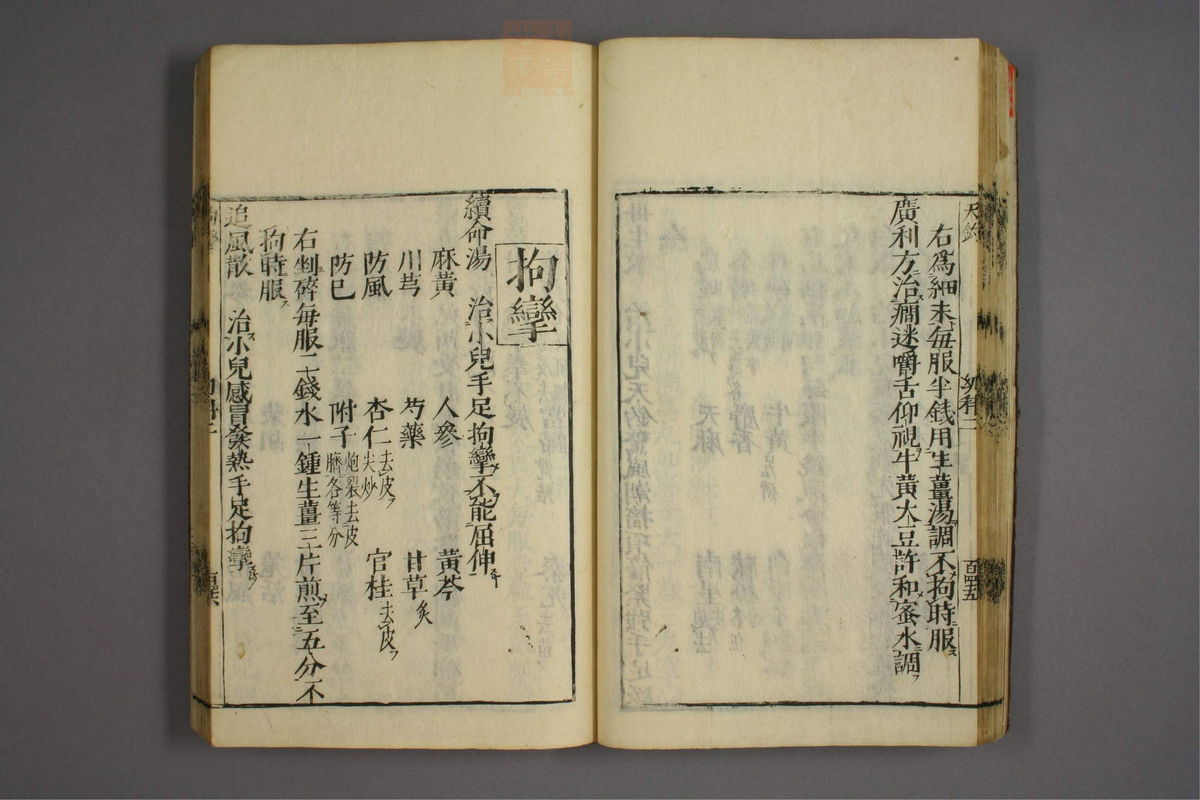 天釣
幼科二
百四十五
右爲細末每服半錢用生薑湯調不拘時服ス
廣利方治癇迷嚼舌仰視牛黄大豆許和蜜水調フ
拘攣
續命湯 治小兒手足拘攣不能屈伸
麻黄 人參 黄芩
川芎 芍藥 甘草炙
防風 杏仁去皮尖炒 官桂去皮
防已 附子炮裂去皮臍各等分
右剉碎每服二錢水一鍾生薑三片煎至五分不
拘時服ス
追風散 治小兒感冒發熱手足拘攣